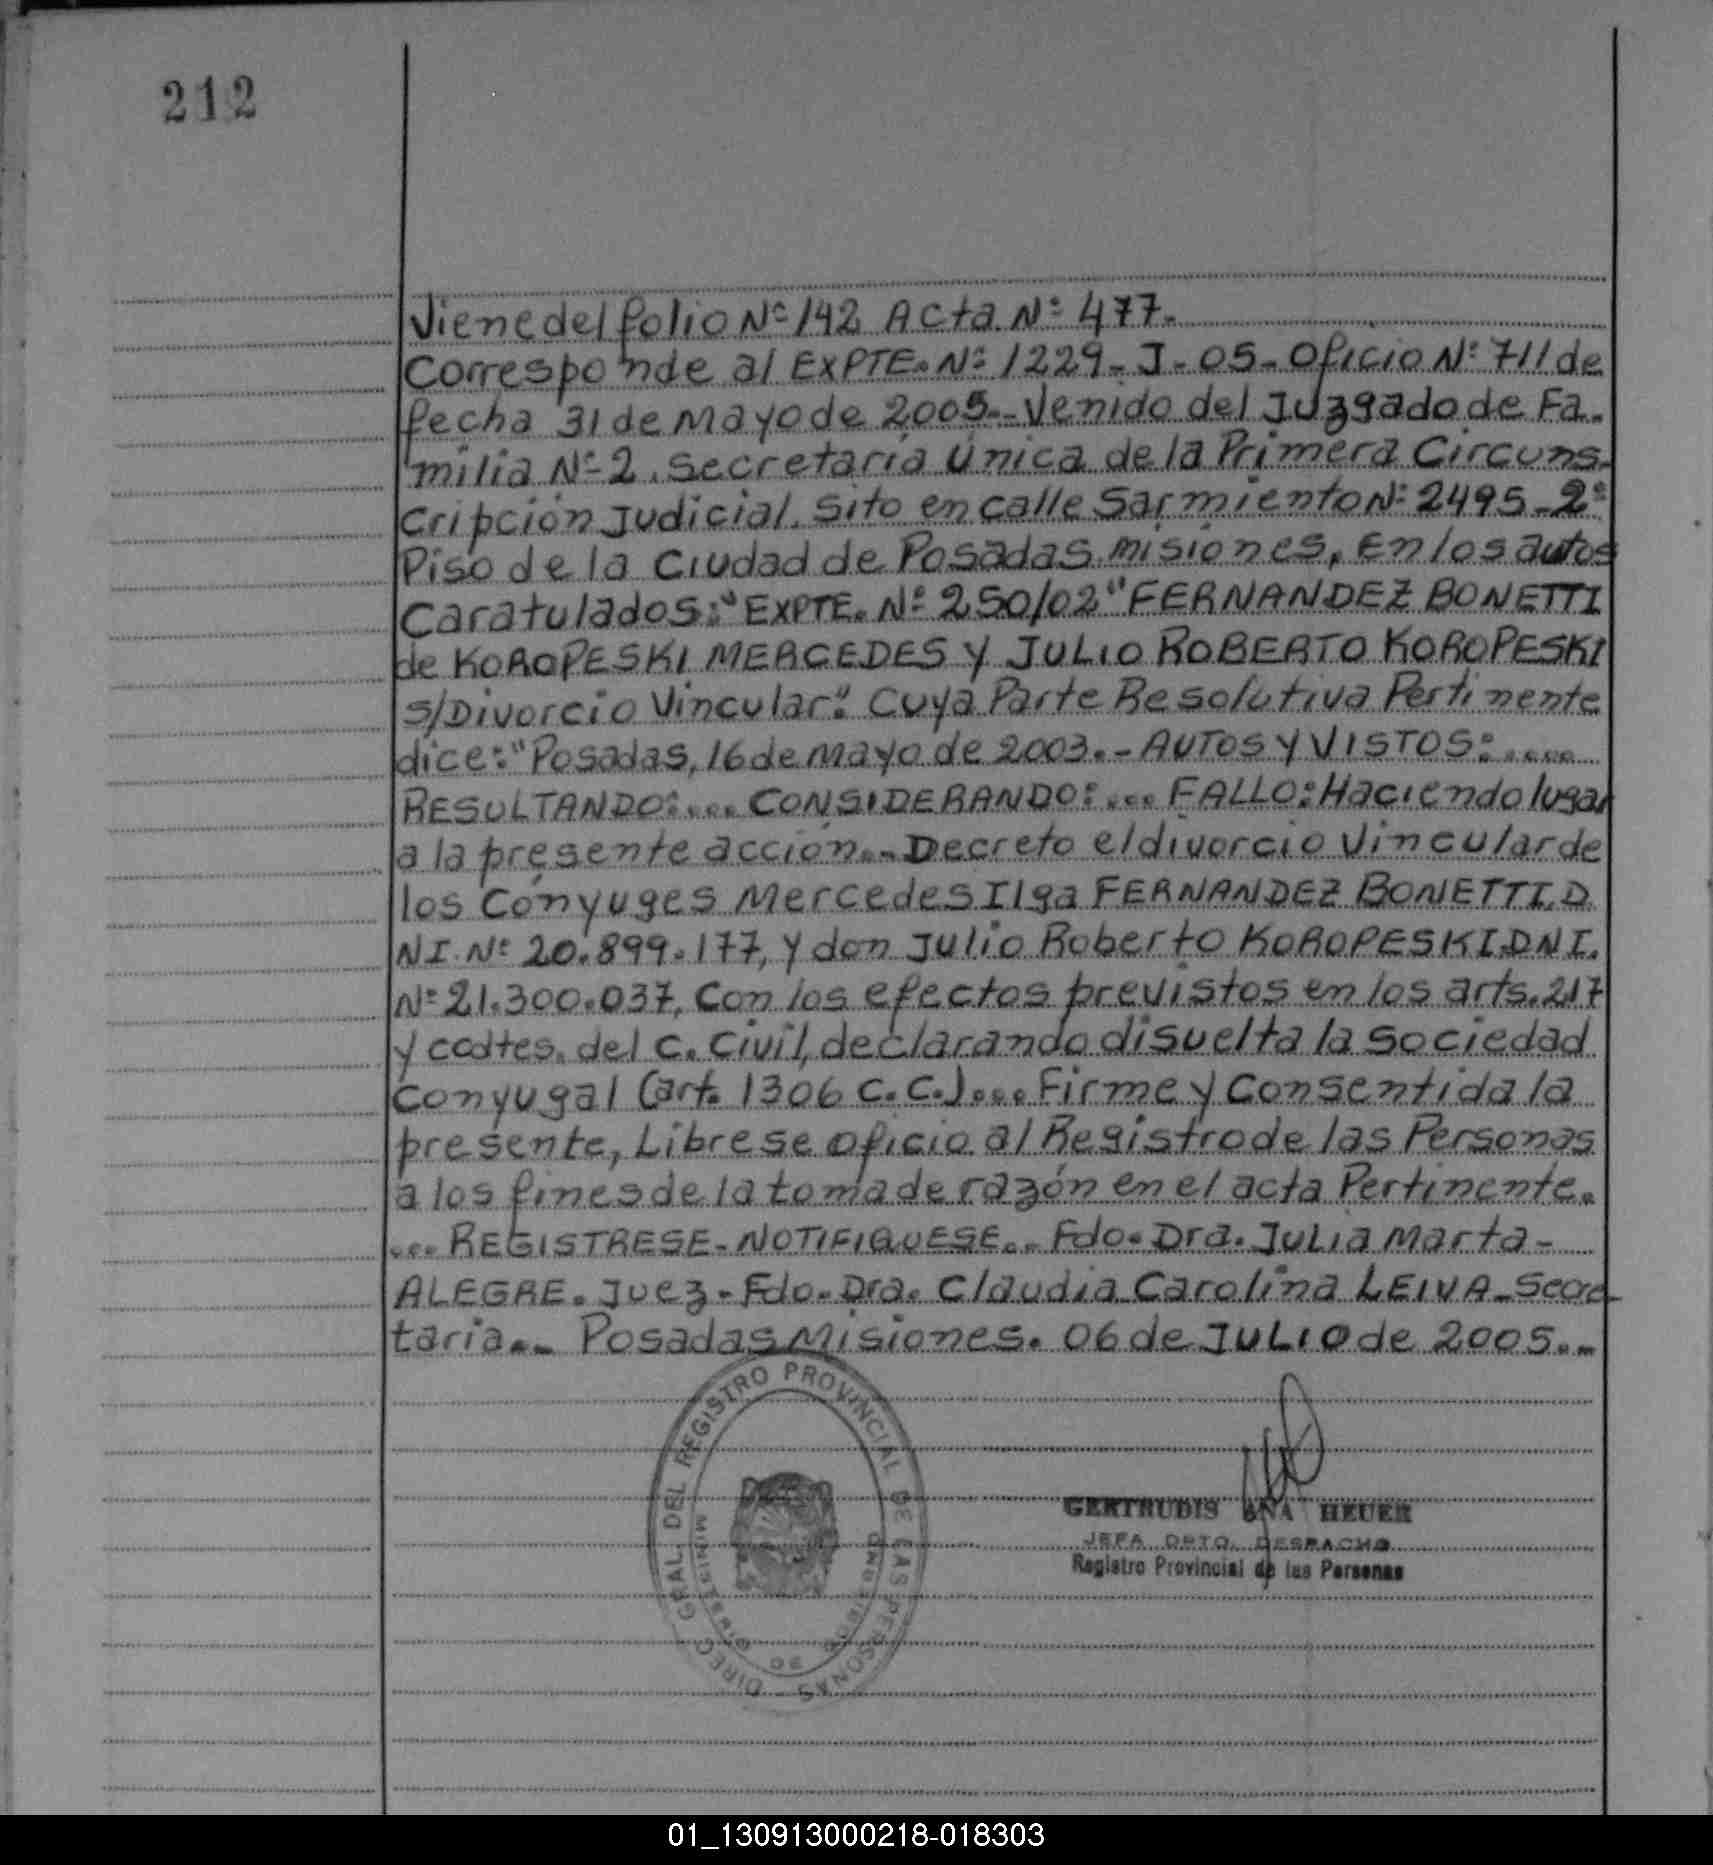 212
Viene del folio Nº 142 Acta Nº 477.
Corresponde al EXPTE. Nº 1229-J-05-Oficio Nº 711 de
fecha 31 de Mayo de 2005.- Venido del Juzgado de Fa-
milia Nº 2. Secretaría única de la Primera Circuns-
cripción Judicial. Sito en calle Sarmiento Nº 2495-2º
Piso de la Ciudad de Posadas misiones, en los autos
Caratulados: "EXPTE. Nº 250/02" FERNANDEZ BONETTI
de KOROPESKI MERCEDES Y JULIO ROBERTO KOROPESKI
s/Divorcio Vincular". Cuya Parte Resolutiva Pertinente
dice: "Posadas, 16 de Mayo de 2003.- AUTOS Y VISTOS:.....
RESULTANDO:.... CONSIDERANDO:... FALLO: Haciendo lugar
a la presente acción.- Decreto el divorcio Vincular de
los Cónyuges Mercedes Ilga FERNANDEZ BONETTI. D.
N I. Nº 20.899.177, y don Julio Roberto KOROPESKI. D N I.
Nº 21.300.037, Con los efectos previstos en los arts. 217
y codtes. del C. Civil, declarando disuelta la Sociedad
Conyugal (art. 1306 C. C.).... Firme y Consentida la
presente, Librese oficio al Registro de las Personas
a los fines de la toma de razón en el acta Pertinente.
... REGISTRESE - NOTIFIQUESE.. Fdo. Dra. Julia Marta -
ALEGRE. Juez - Fdo. Dra. Claudia Carolina LEIVA - Secre-
taria.- Posadas Misiones. 06 de JULIO de 2005.-
DIREC. GRAL. DEL REGISTRO PROVINCIAL DE LAS PERSONAS
MINISTERIO DE GOBIERNO
GERTRUDIS ANA HEUER
JEFA DPTO. DESPACHO
Registro Provincial de las Personas
01_130913000218-018303